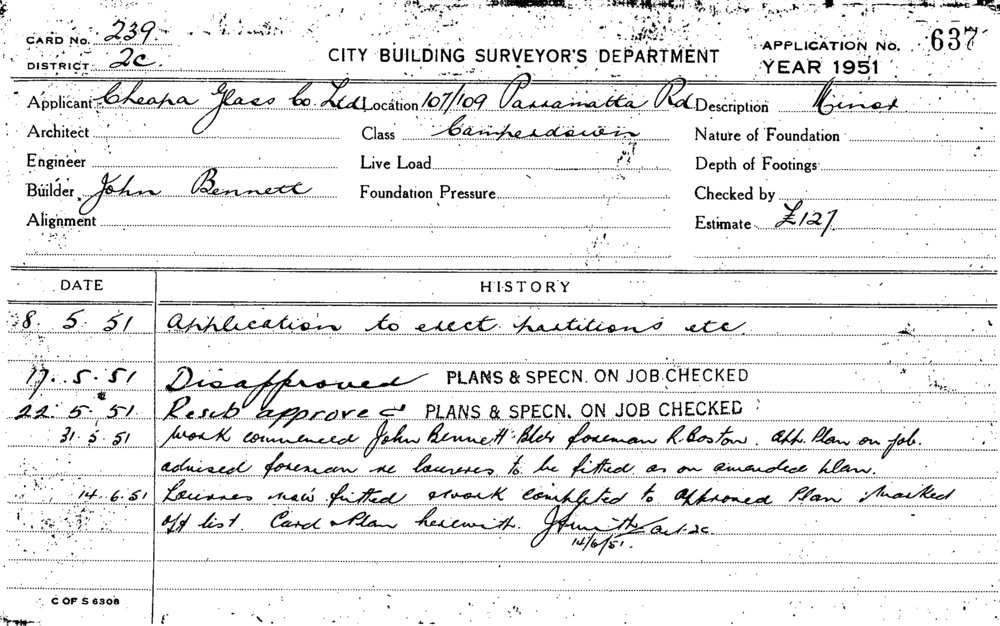 CARD No. 239
DISTRICT 2c
CITY BUILDING SURVEYOR'S DEPARTMENT
APPLICATION No. 637
YEAR 1951
Applicant Cheapa Glass Co. Ltd Location 107/109 Parramatta Rd Description Minor
Architect Class Camperdown Nature of Foundation
Engineer Live Load Depth of Footings
Builder John Bennett Foundation Pressure Checked by
Alignment Estimate £127
DATE HISTORY
8. 5. 51 Application to erect partitions etc
17. 5. 51 Disapproved PLANS & SPECN. ON JOB CHECKED
22 5 51 Resub approved PLANS & SPECN. ON JOB CHECKED
31 5 51 Work commenced John Bennett Bldr foreman R. Boston. App. Plan on job.
advised foreman re louvres to be fitted as on amended plan.
14.6.51 Louvres now fitted & work completed to approved Plan Marked
off list. Card & Plan herewith.
14/6/51.
C OF S 6308